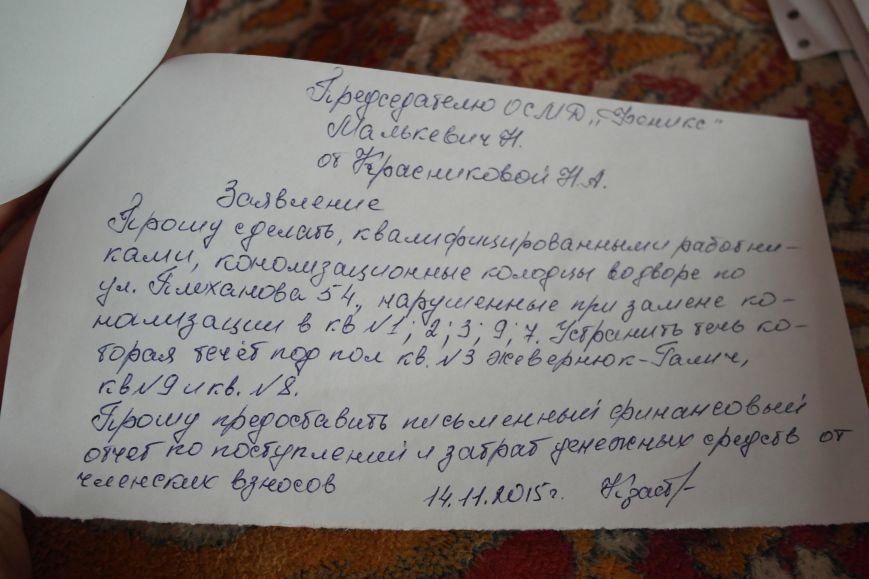 Председателю ОСМД „Феникс"
Малькевич Н.
от Красниковой Н.А.
Заявление
Прошу сделать, квалифицированными работни-
ками, конолизационные колодцы во дворе по
ул. Плеханова 54, нарушенные при замене ко-
нализации в кв №1; 2; 3; 9; 7. Устранить течь ко-
торая течёт под пол кв. №3 Жевернюк-Галич,
кв №9 и кв. №8.
Прошу предоставить письменный финансовый
отчет по поступлений и затрат денежных средств от
членских взносов
14.11.2015г.